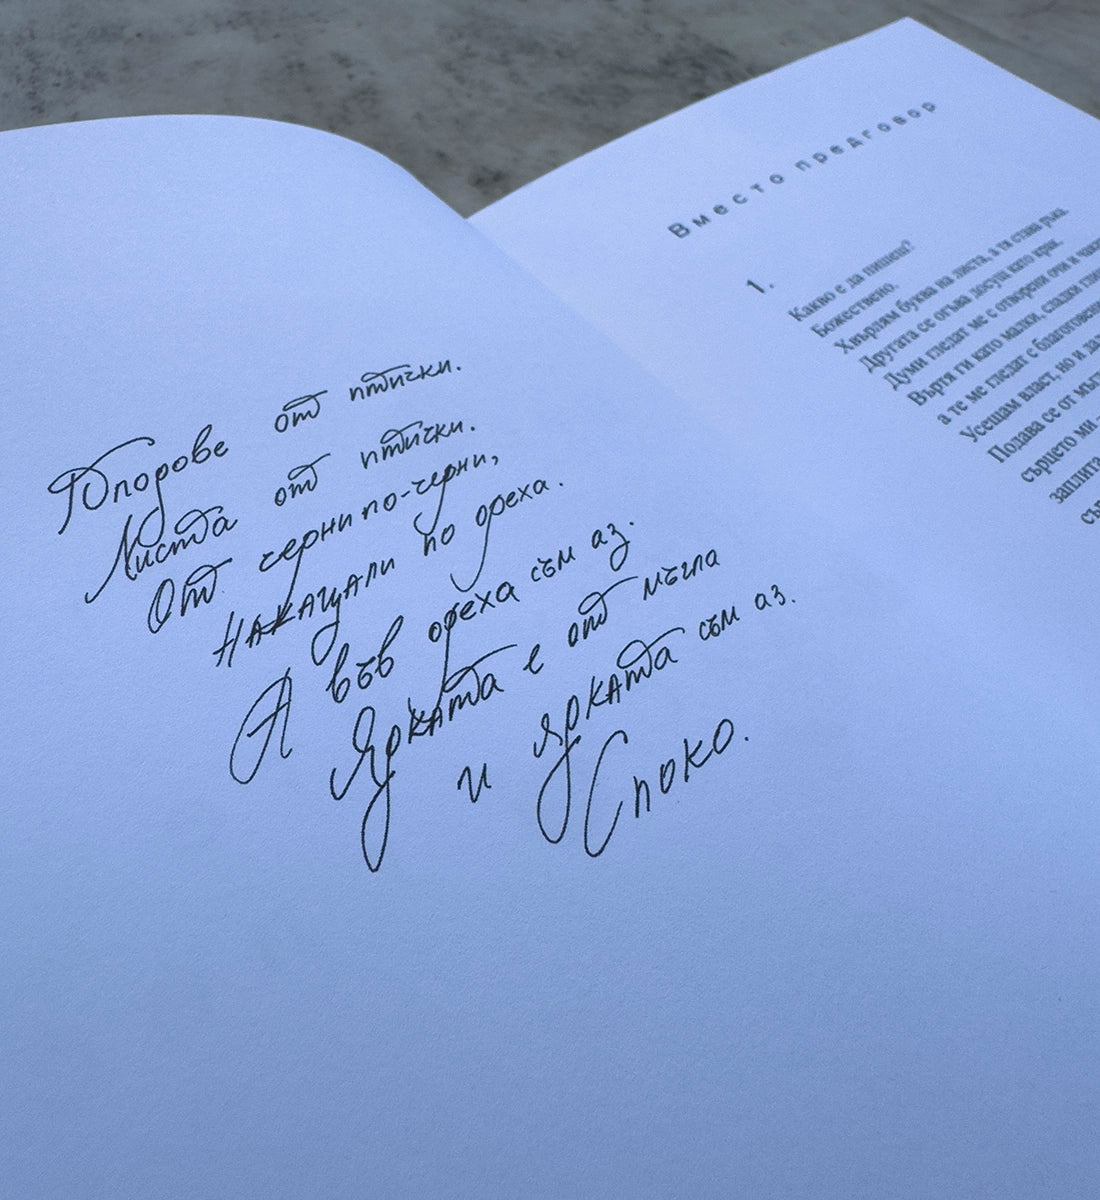 Топорове от птички.
Листа от птички.
От черни по-черни,
накацали по ореха.
А във ореха съм аз.
Ярката е от мъгла
и ярката съм аз.
Споко.
Вместо предговор
1.
Какво е да пишеш?
Божествено.
Хвърлям буква на листа, а тя става ръка.
Другата се огъва досущ като крак.
Думи гледат ме с отворени очи и
Въртя ги като малки, сладки
а те ме гледат с
Усещам власт, но и
Подава се от
сърцето ми -
заплита